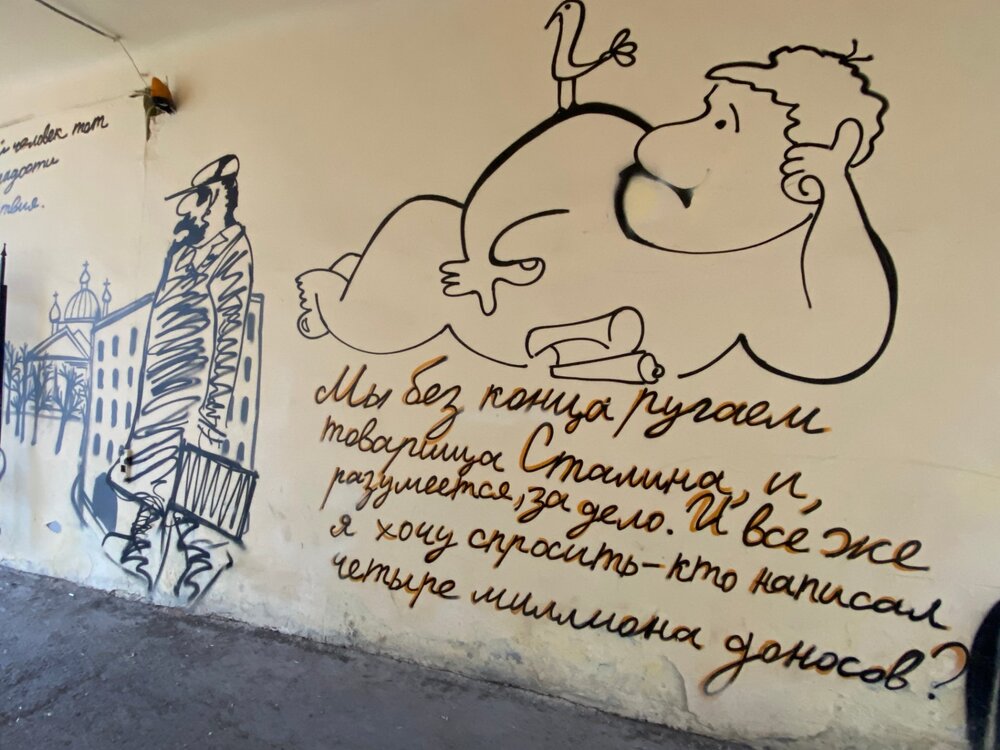 человек тот
Мы без конца ругаем
товарища Сталина, и,
разумеется, за дело. И всё же
я хочу спросить-кто написал
четыре миллиона доносов?